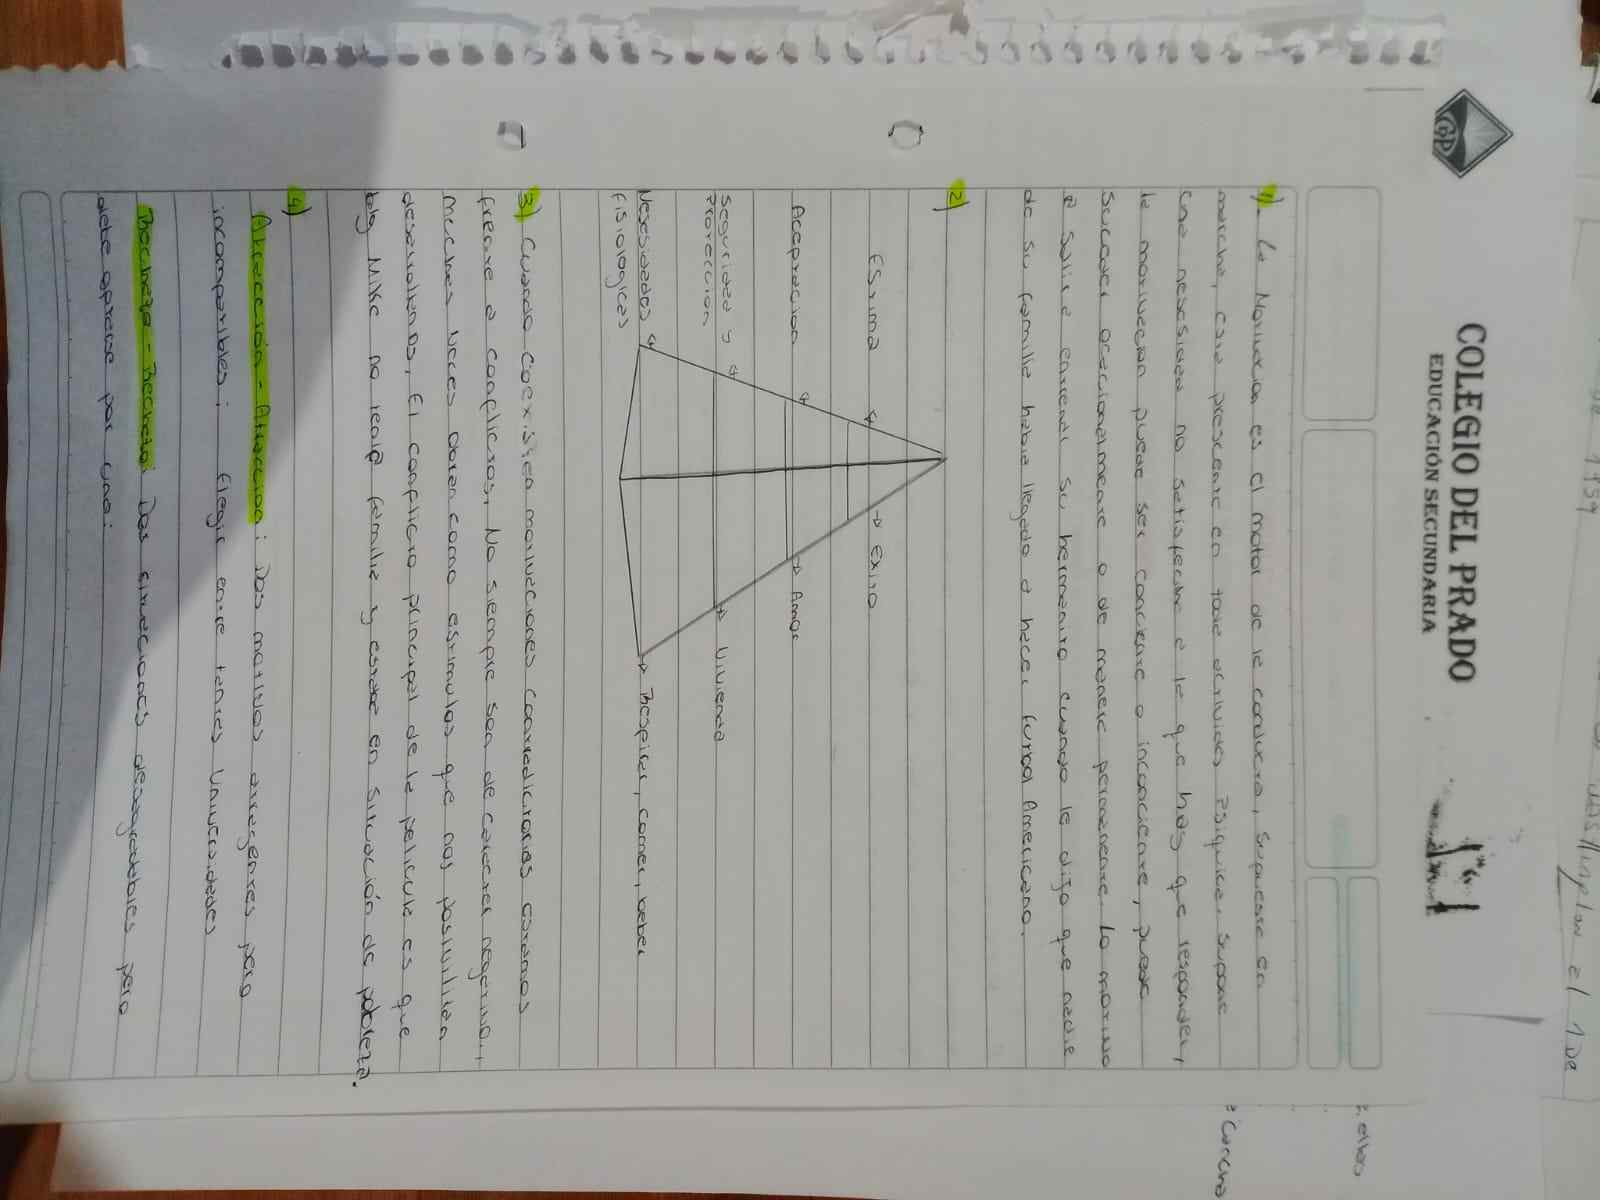 COLEGIO DEL PRADO
EDUCACIÓN SECUNDARIA
CDP
1). La Motivacion es el motor de la conducta, supueste en
marcha, esta presente en toda actividad Psiquica, supone
una nesesidad no satisfecha a la que hay que responder,
la motivacion puede ser conciente o inconciente, puede
suceder ocacionalmente o de manera permanente. Lo motivo
a salir a entrenar su hermanito cuando le dijo que nadie
de su familia habia llegado a hacer futbol Americano.
2)
Estima → Exito
Aceptacion → Amor
Seguridad y → Vivienda
Proteccion
Nesesidades → Respirar, comer, beber
fisiologicas
3) Cuando coexisten motivaciones contradictorias estamos
frente a conflictos, No siempre son de caracter negativo,
muchas veces actuan como estimulos que nos posibilitan
desarrollarnos, El conflicto principal de la pelicula es que
big Mike no tenia familia y estaba en situación de pobleza.
4)
Atracción - Atraccion: Dos motivos atragentes pero
incompatibles: Elegir entre tantas Universidades
Rechazo - Rechazo: Dos situaciones desagradables pero
debe optarse por una:
1939
el 1 De